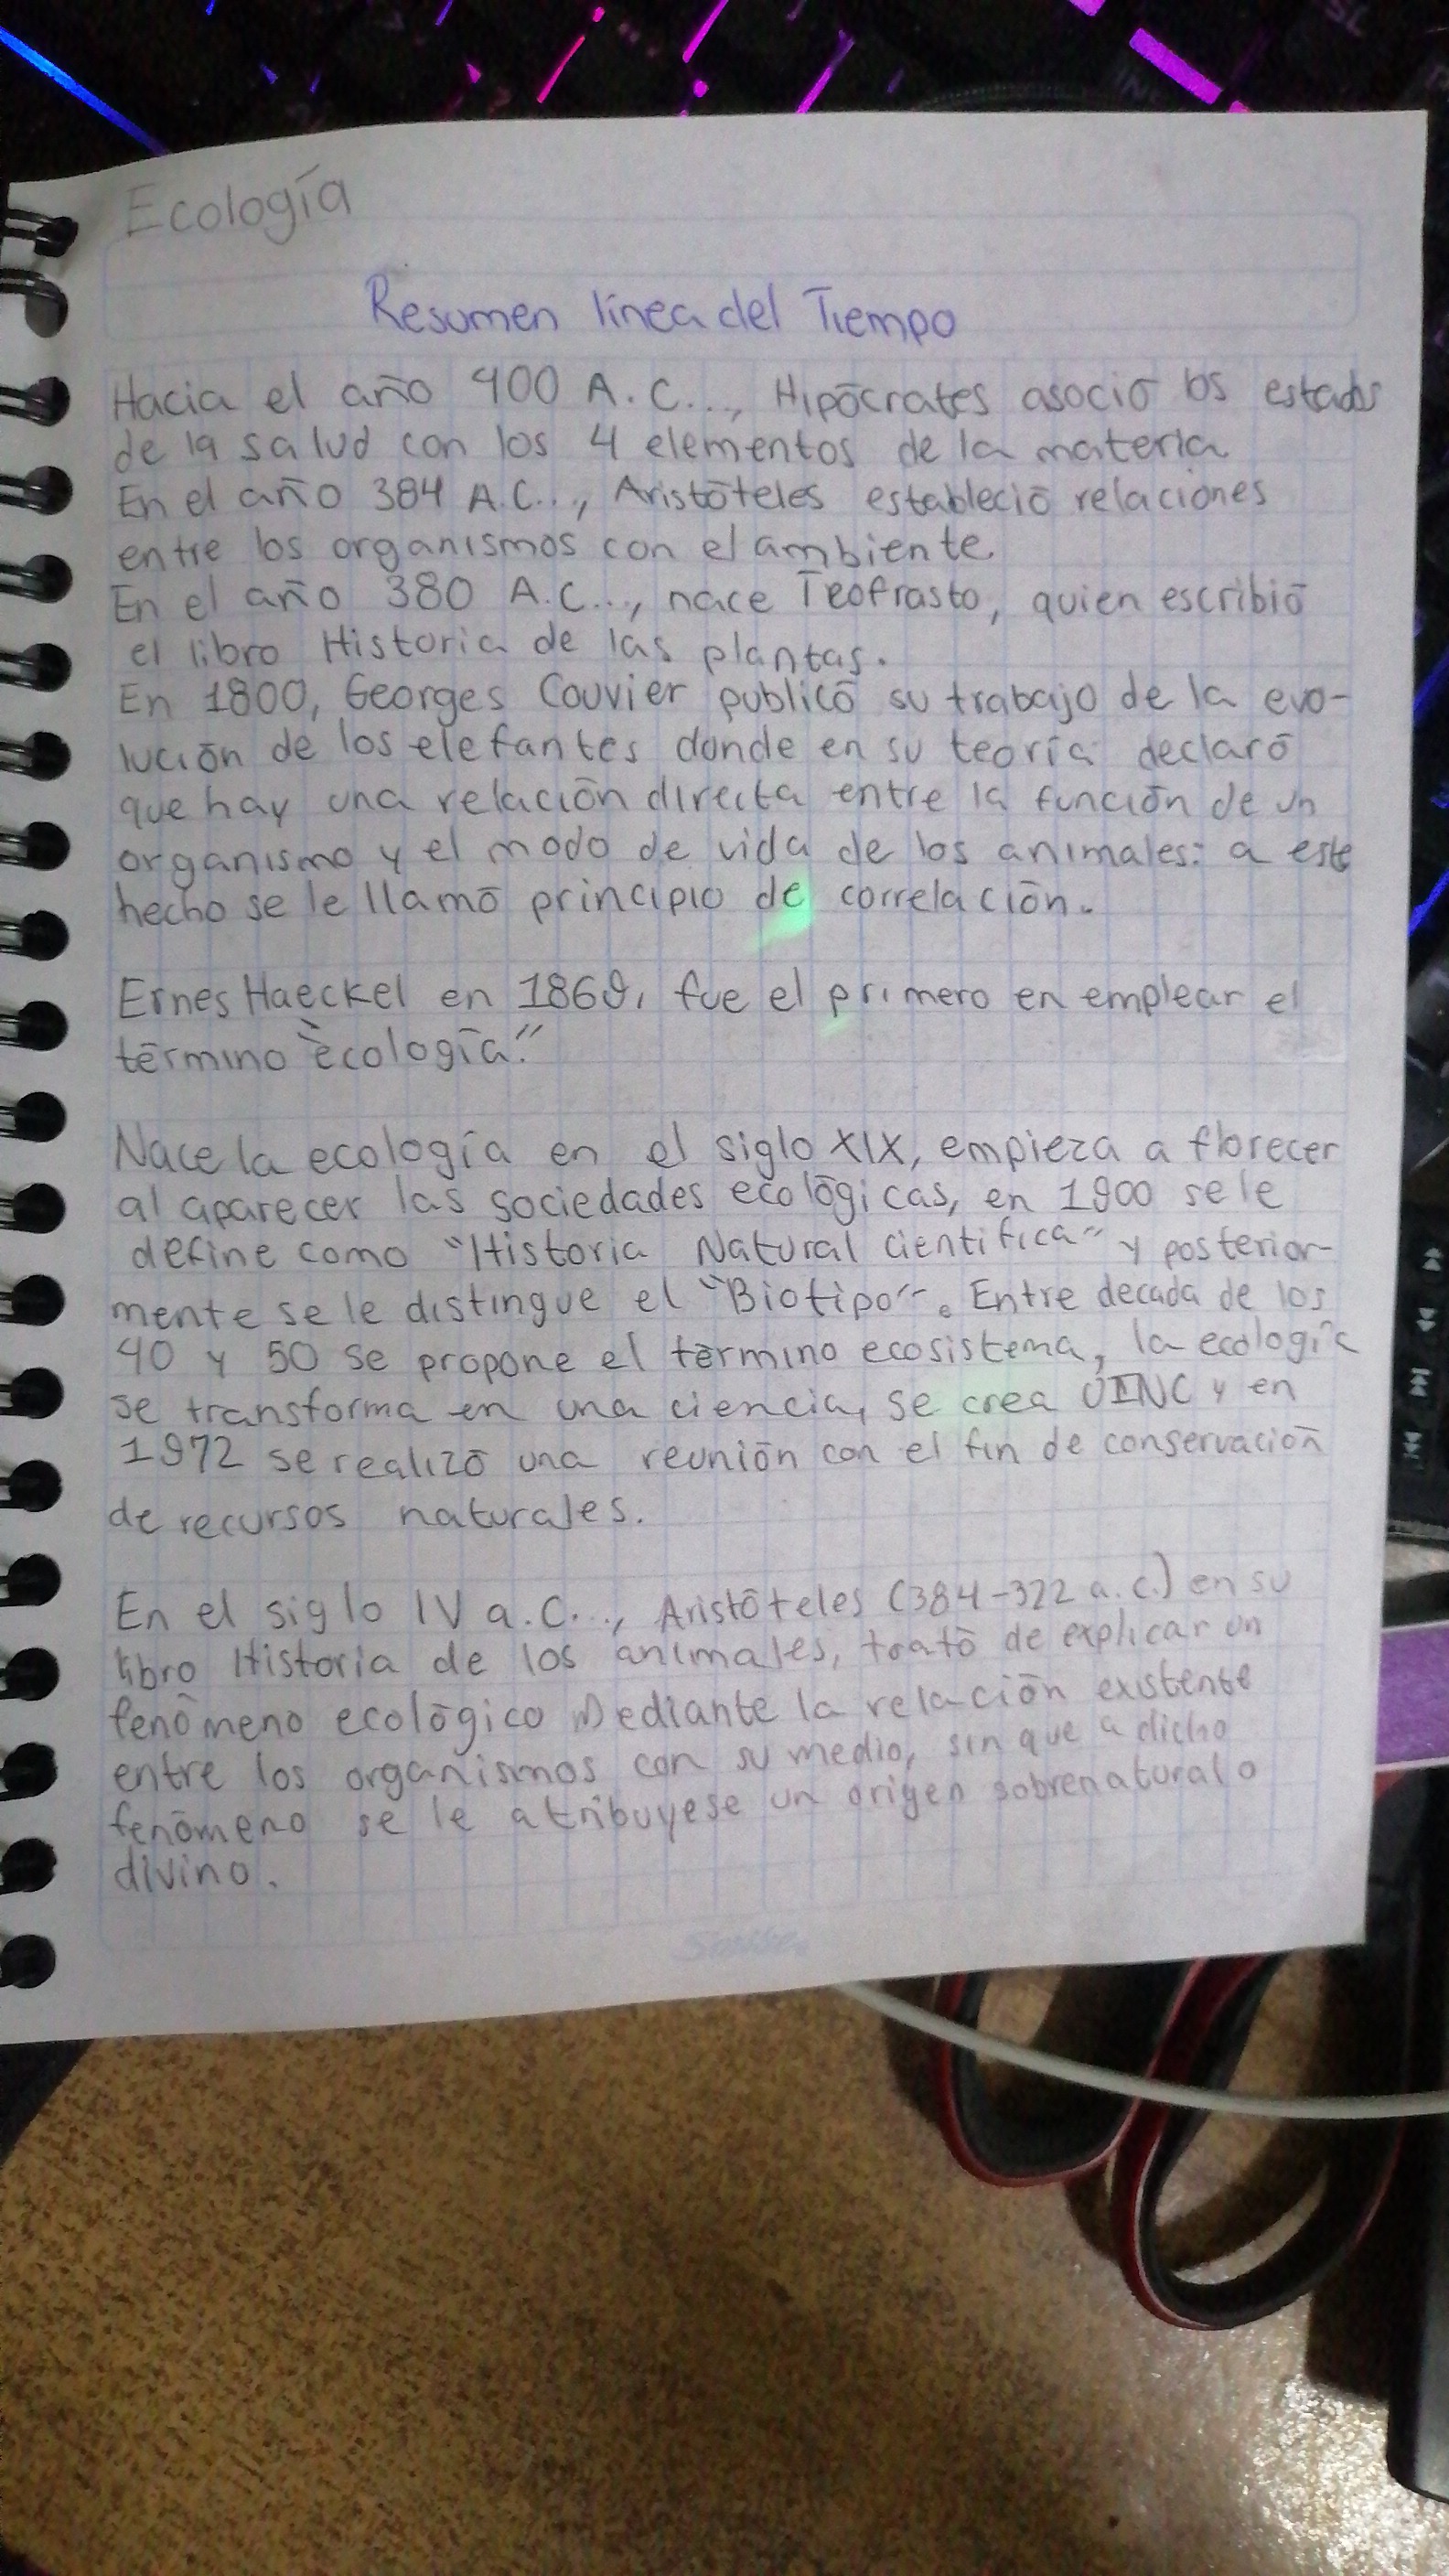 Ecología
Resumen línea del Tiempo
Hacia el año 400 A.C..., Hipócrates asoció los estados
de la salud con los 4 elementos de la materia
En el año 384 A.C..., Aristóteles estableció relaciones
entre los organismos con el ambiente.
En el año 380 A.C..., nace Teofrasto, quien escribió
el libro Historia de las plantas.
En 1800, Georges Couvier publicó su trabajo de la evo-
lución de los elefantes donde en su teoría declaró
que hay una relación directa entre la función de un
organismo y el modo de vida de los animales: a este
hecho se le llamó principio de correlación.
Ernes Haeckel en 1869, fue el primero en emplear el
término "ecología."
Nace la ecología en el siglo XIX, empieza a florecer
al aparecer las sociedades ecológicas, en 1900 se le
define como "Historia Natural cientifica" y posterior-
mente se le distingue el "Biotipo". Entre decada de los
40 y 50 se propone el término ecosistema, la ecología
se transforma en una ciencia, se crea UINC y en
1972 se realizó una reunión con el fin de conservación
de recursos naturales.
En el siglo IV a.C..., Aristóteles (384-322 a.c.) en su
libro Historia de los animales, trató de explicar un
fenómeno ecológico Mediante la relación existente
entre los organismos con su medio, sin que a dicho
fenómeno se le atribuyese un origen sobrenatural o
divino.
Scribe